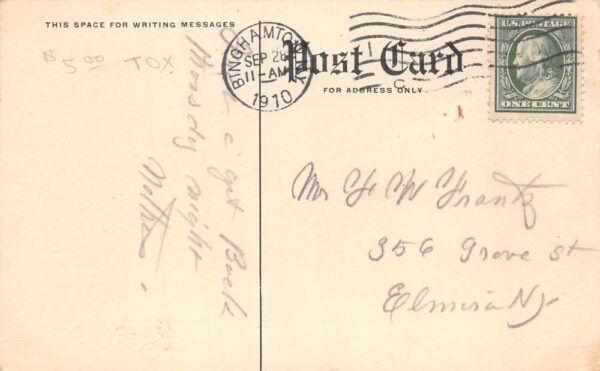 THIS SPACE FOR WRITING MESSAGES
$5.00 TOX
i get Back
Monday night
Mother.
BINGHAMTON N.Y.
SEP 26
11-AM
1910
1
C
Post Card
FOR ADDRESS ONLY
U.S. POSTAGE
ONE CENT
Mr F W Frantz
356 Grove st
Elmira NY